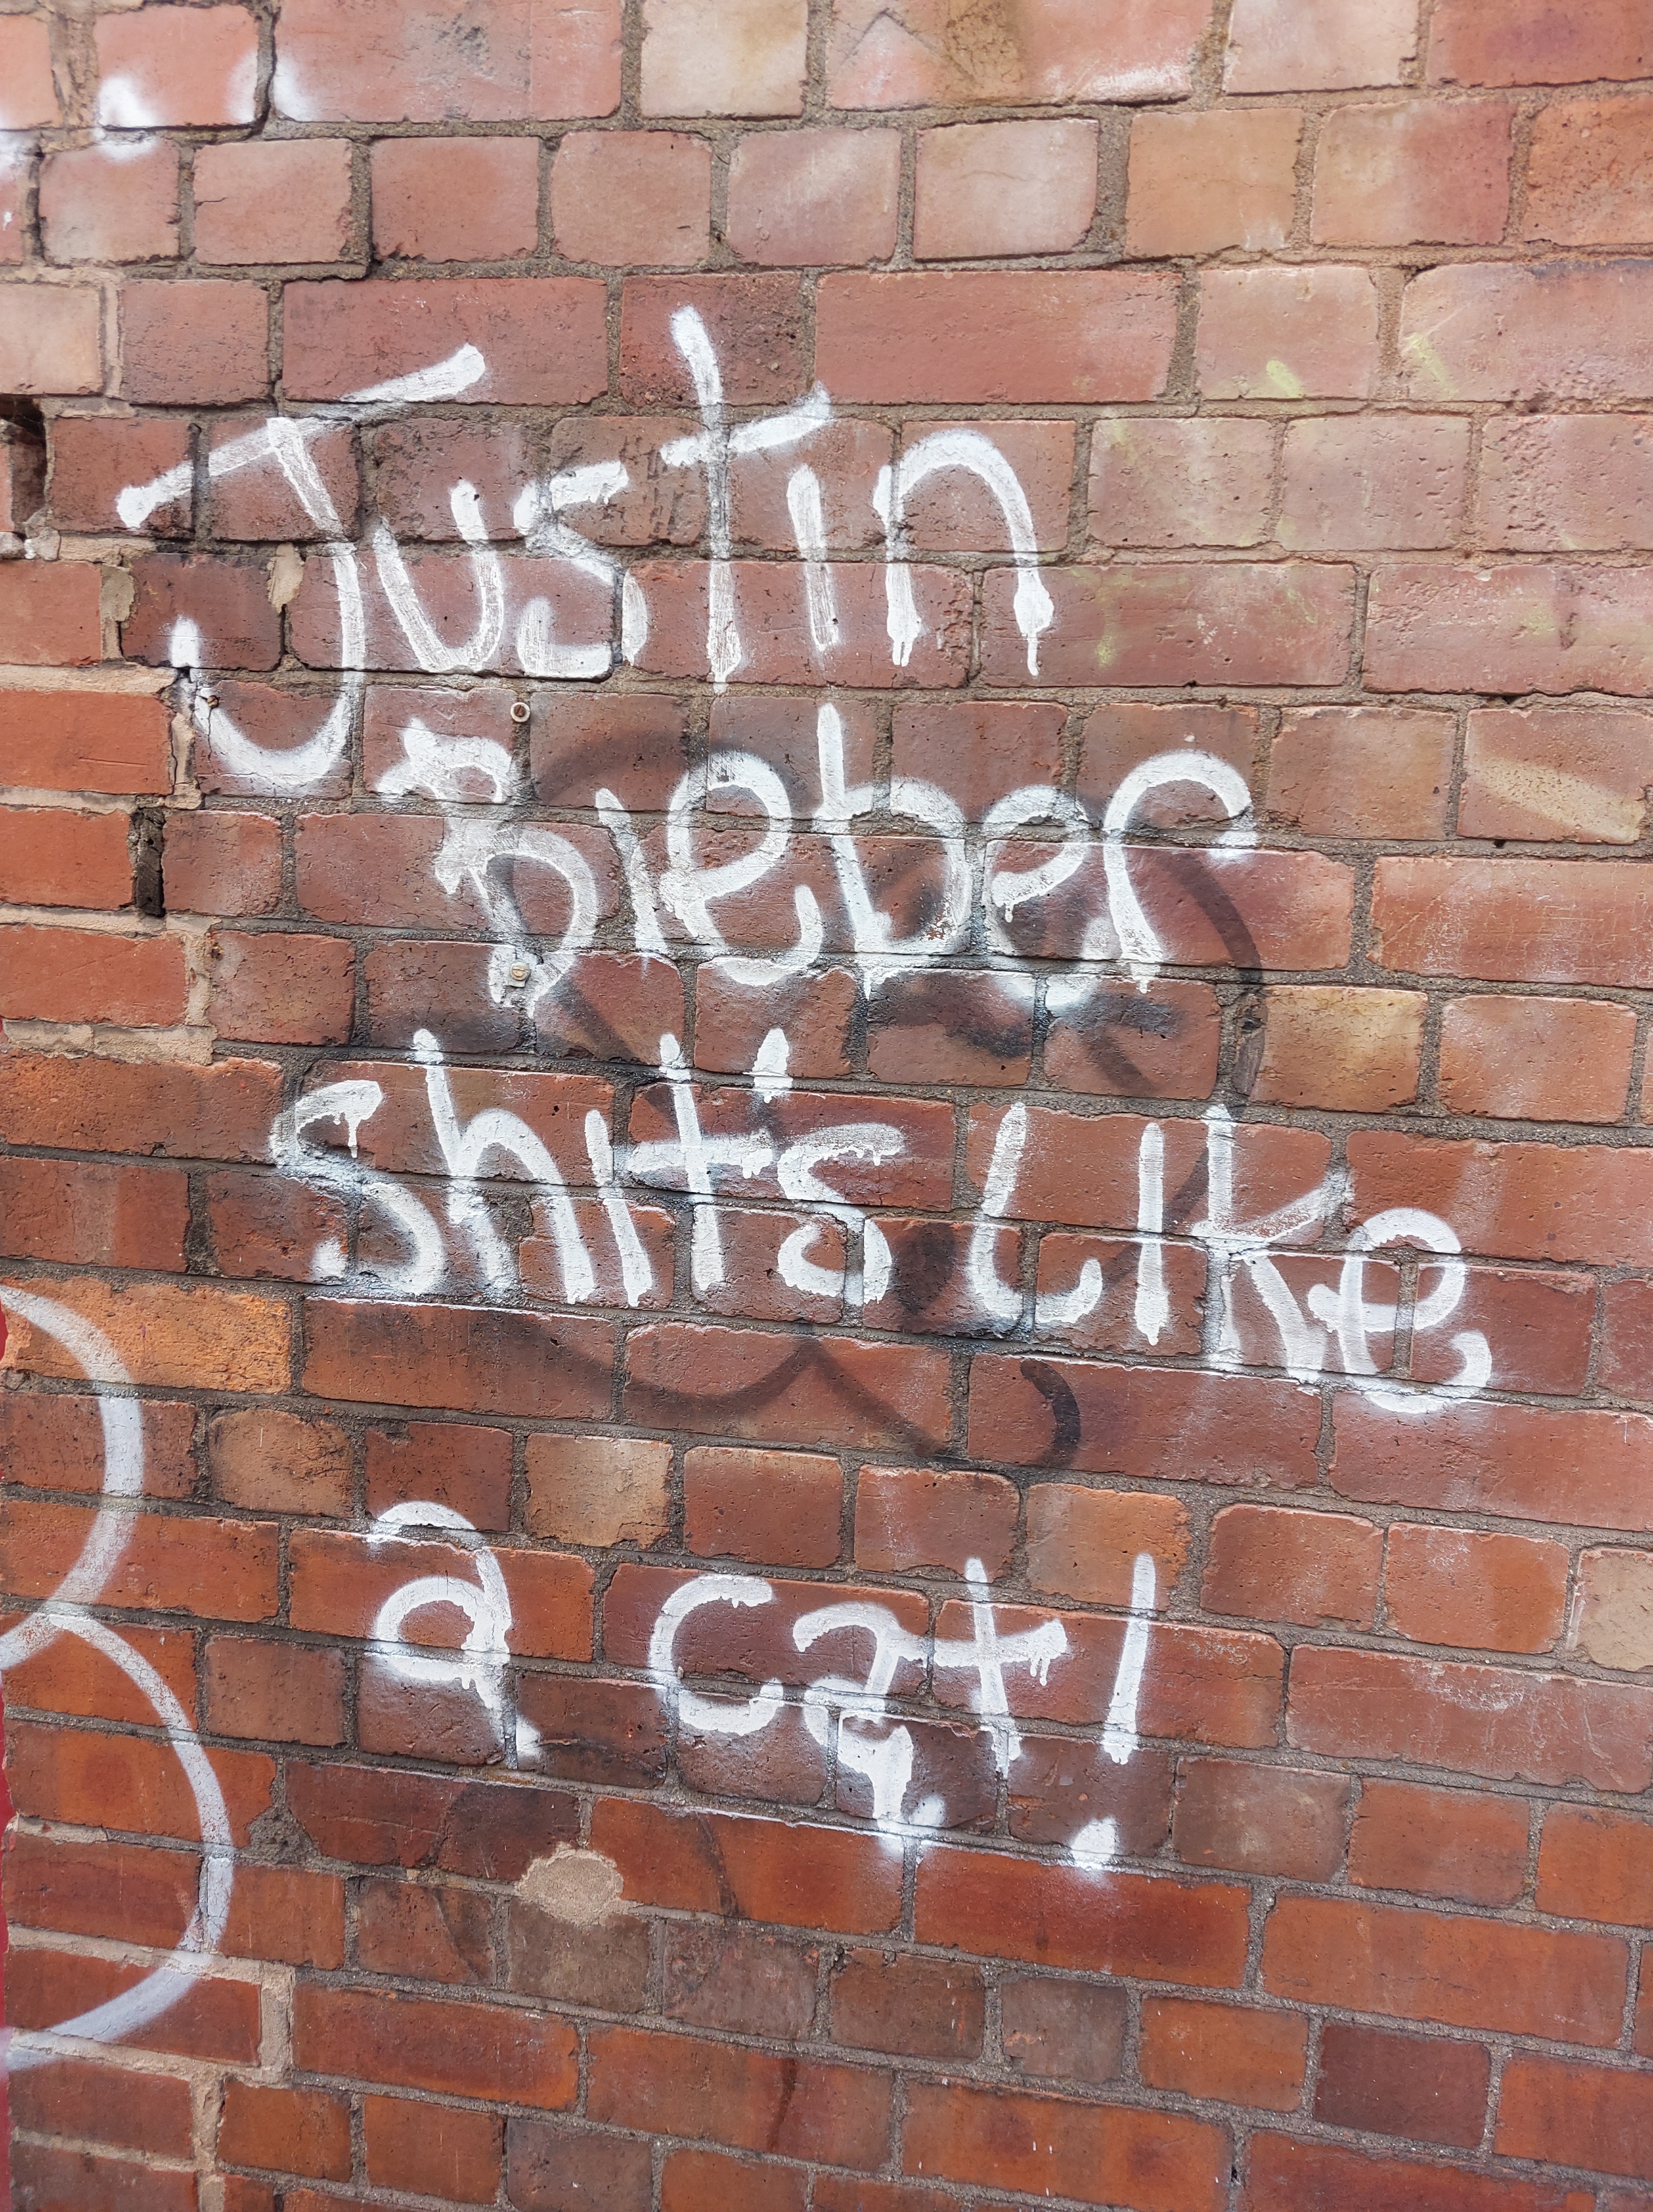 Justin
Bieber
shit's Like
a cat!